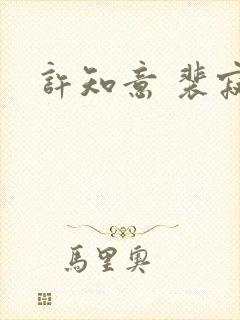 許知意 裴寂
馬里奧